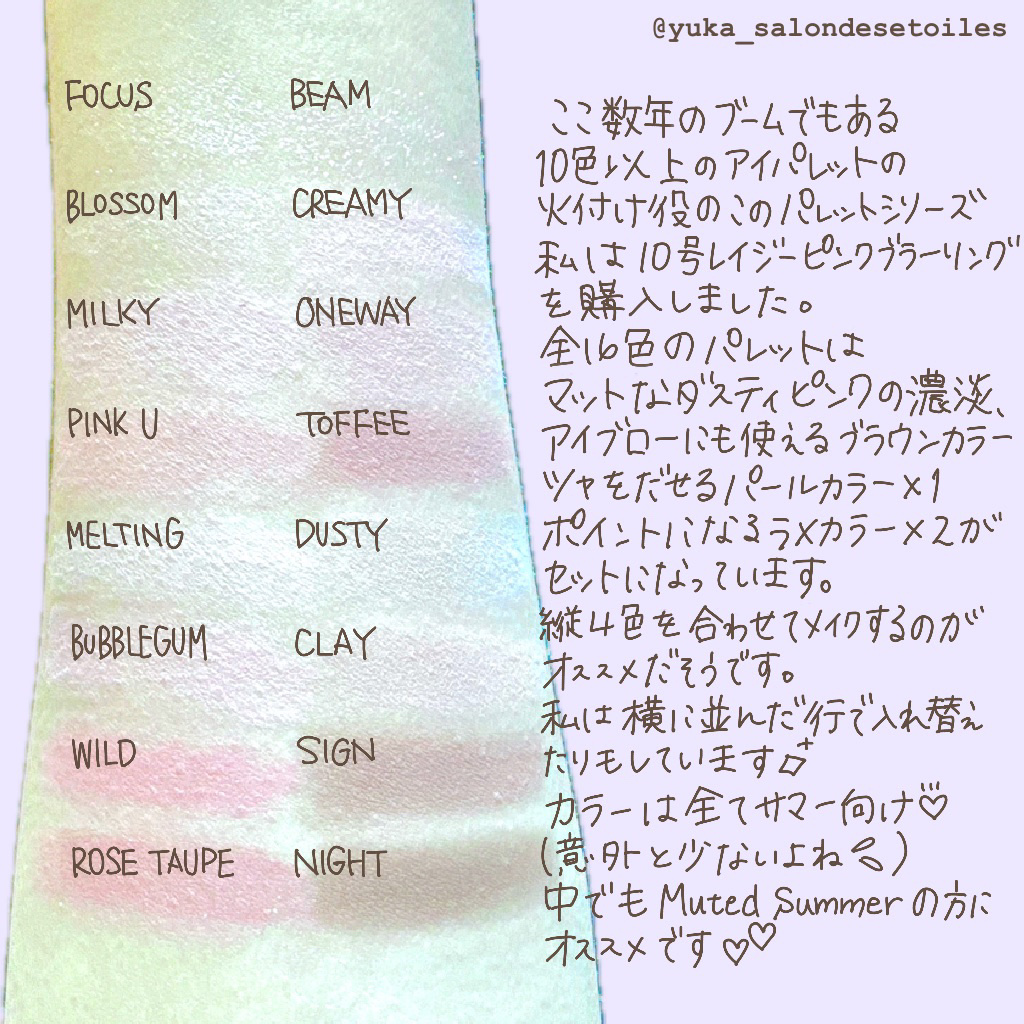 @yuka_salondesetoiles
FOCUS
BEAM
BLOSSOM
CREAMY
MILKY
ONEWAY
PINK U
TOFFEE
MELTING
DUSTY
BUBBLEGUM
CLAY
WILD
SIGN
ROSE TAUPE
NIGHT
ここ数年のブームでもある
10色以上のアイパレットの
火付け役のこのパレットシリーズ
私は10号レイジーピンクブラーリング
を購入しました。
全16色のパレットは
マットなダスティピンクの濃淡、
アイブローにも使えるブラウンカラー
ツヤをだせるパールカラー×1
ポイントになるラメカラー×2が
セットになっています。
縦4色を合わせてメイクするのが
オススメだそうです。
私は横に並んだ行で入れ替え
たりもしています
カラーは全てサマー向け♡
(意外と少ないよね)
中でもMuted Summerの方に
オススメです♡♡